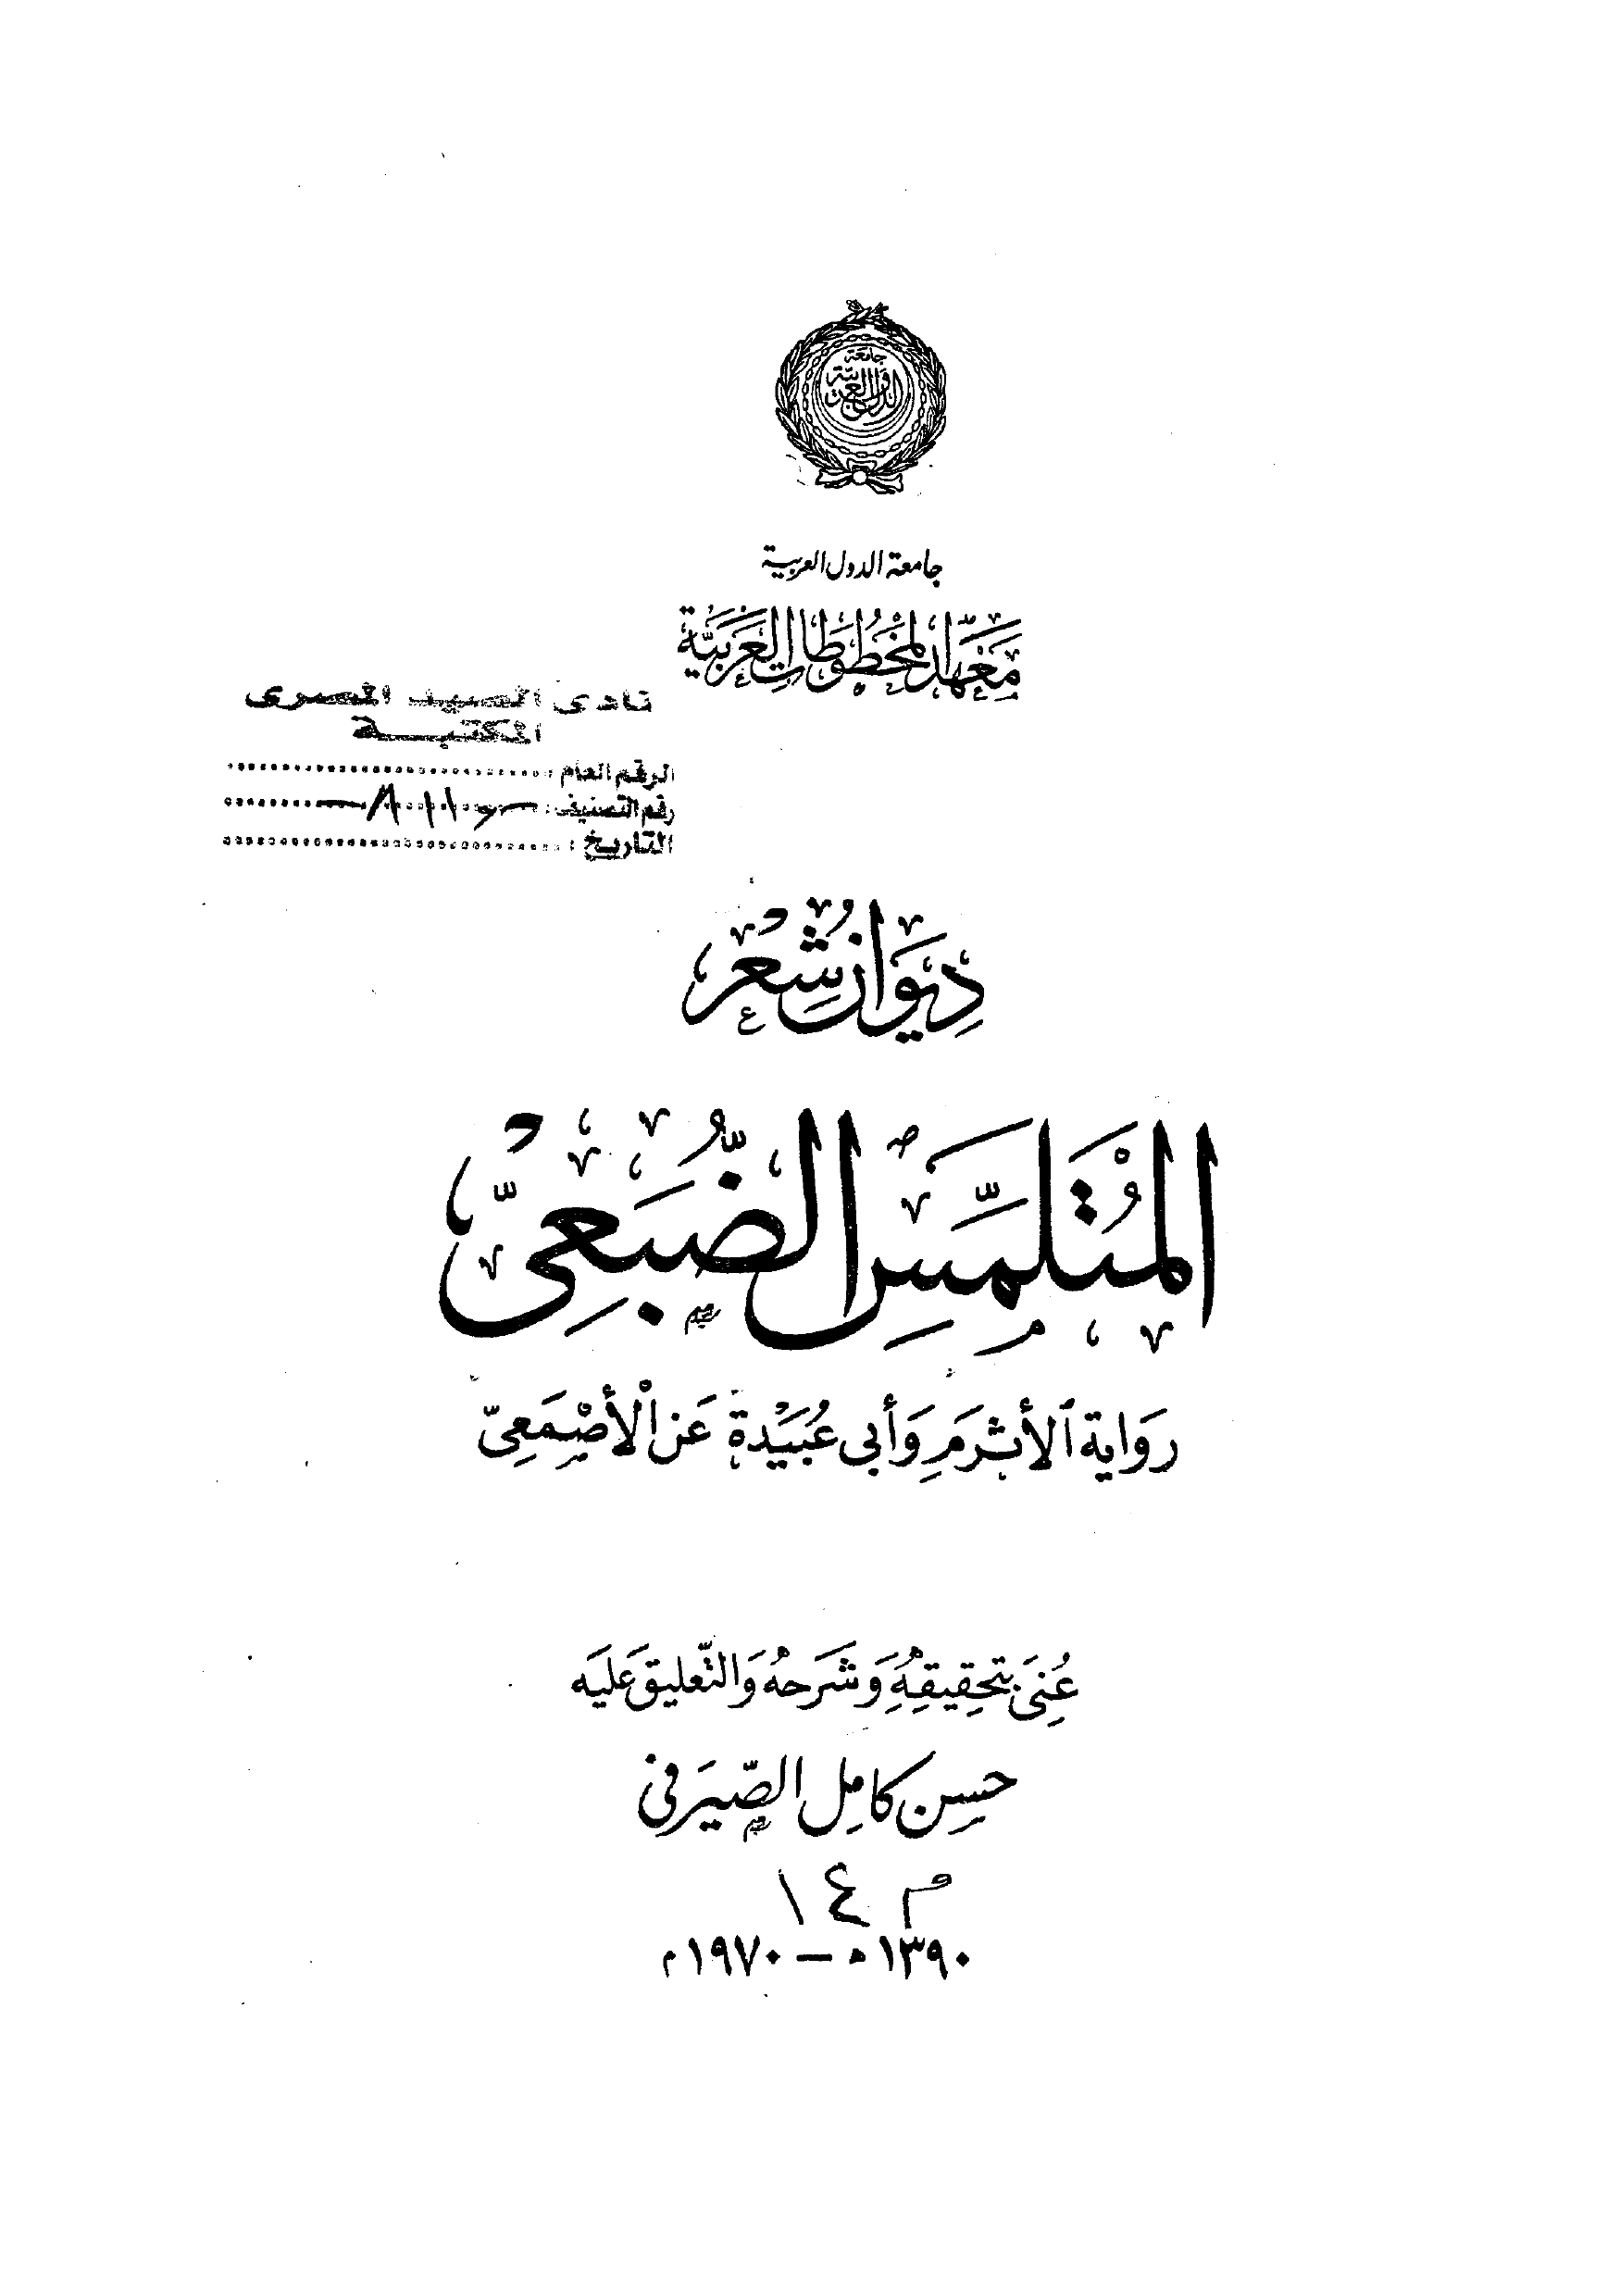 جامعة
الدول العربية
جامعة الدول العربية
مَعْهَد المَخْطُوطَاتِ العَرَبيَّة
نادى الصيد المصرى
المكتبـــة
الرقم العام :
رقم التصنيف :
التاريخ :
دِيوَانُ شِعْر
المُتَلَمِّسِ الضُّبَعِيّ
رِوَاية الأثرَمِ وَأبى عُبَيْدة عَن الْأصْمَعِىّ
عُنِىَ بتحقِيقِهِ وَشَرحه وَالتّعليق عَليَه
حسن كامل الصَّيرَفى
م ١٤
١٣٩٠ ه — ١٩٧٠ م